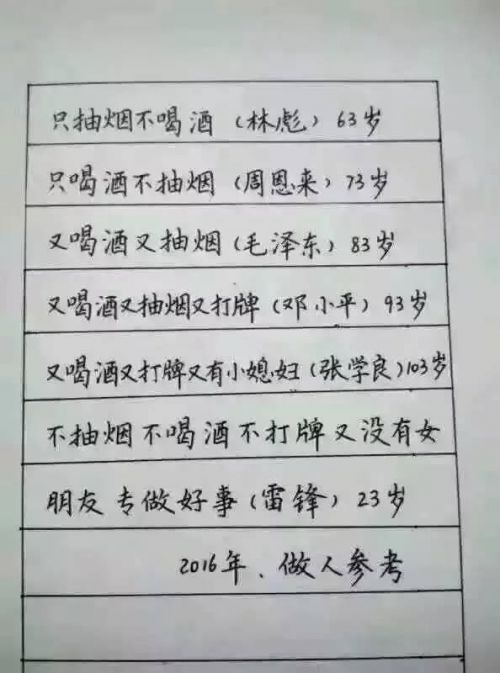 只抽烟不喝酒（林彪）63岁
只喝酒不抽烟（周恩来）73岁
又喝酒又抽烟（毛泽东）83岁
又喝酒又抽烟又打牌（邓小平）93岁
又喝酒又打牌又有小媳妇（张学良）103岁
不抽烟不喝酒不打牌又没有女
朋友专做好事（雷锋）23岁
2016年、做人参考